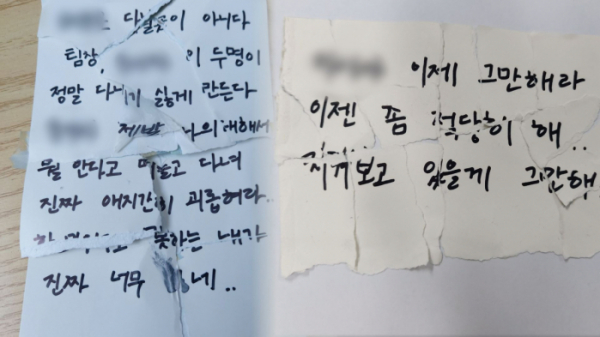 다닐곳이 아니다
팀장, 이 두명이
정말 다니기 싫게 만든다
제발 나의 대해서
뭘 안다고 떠들고 다녀
진짜 애지간히 괴롭혀라..
못하는 내가
진짜 너무
이제 그만해라
이젠 좀 적당히 해..
지켜보고 있을게 그만해